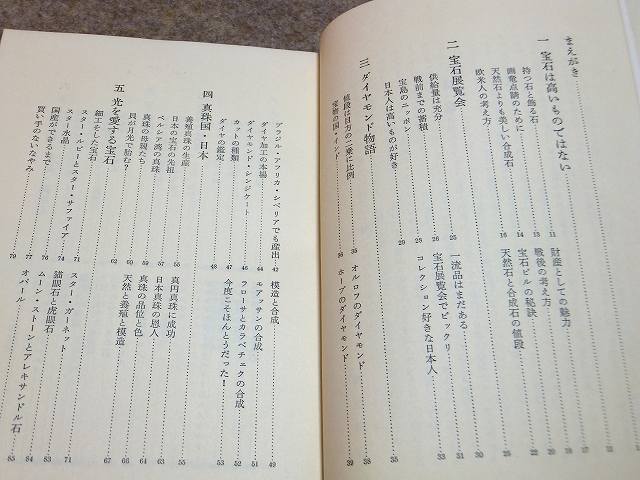 まえがき
一 宝石は高いものではない
持つ石と飾る石 11
画竜点睛のために 12
天然石よりも美しい合成石 14
欧米人の考え方 16
財産としての魅力
戦後の考え方
宝石ビルの秘訣
天然石と合成石の値段
二 宝石展覧会 25
供給量は充分 26
戦前までの蓄積
宝島のニッポン 28
日本人は高いものが好き 29
一流品はまだある 30
宝石展覧会でビックリ 31
コレクション好きな日本人 33
三 ダイヤモンド物語 35
値段は目方の二乗に比例 35
宝物の国・インド 36
オルロフのダイヤモンド 38
ホープのダイヤモンド 39
ブラジル・アフリカ・シベリアでも産出 42
ダイヤ加工の本場 44
ダイヤモンド・シンジケート 46
カットの種類 47
ダイヤの鑑定 48
模造と合成 49
モアッサンの合成 51
ラローサとカラベチェクの合成 52
今度こそほんとうだった! 53
四 真珠国・日本 55
養殖真珠の生産 55
日本の宝石の先祖 57
ペルシア湾の真珠 58
真珠の母親たち 59
貝が月光で胎む? 60
真円真珠に成功 55
日本真珠の恩人 63
真珠の品位と色 64
天然と養殖と模造 67
五 光を愛する宝石 69
細工そした宝石 69
スター・ルビーとスター・サファイア 71
スター水晶 74
国産ができるまで 76
買い手のないなやみ 77
79
スター・ガーネット 71
猫眼石と虎眼石 83
ムーン・ストーンとアレキサンドル石 84
オパール 85